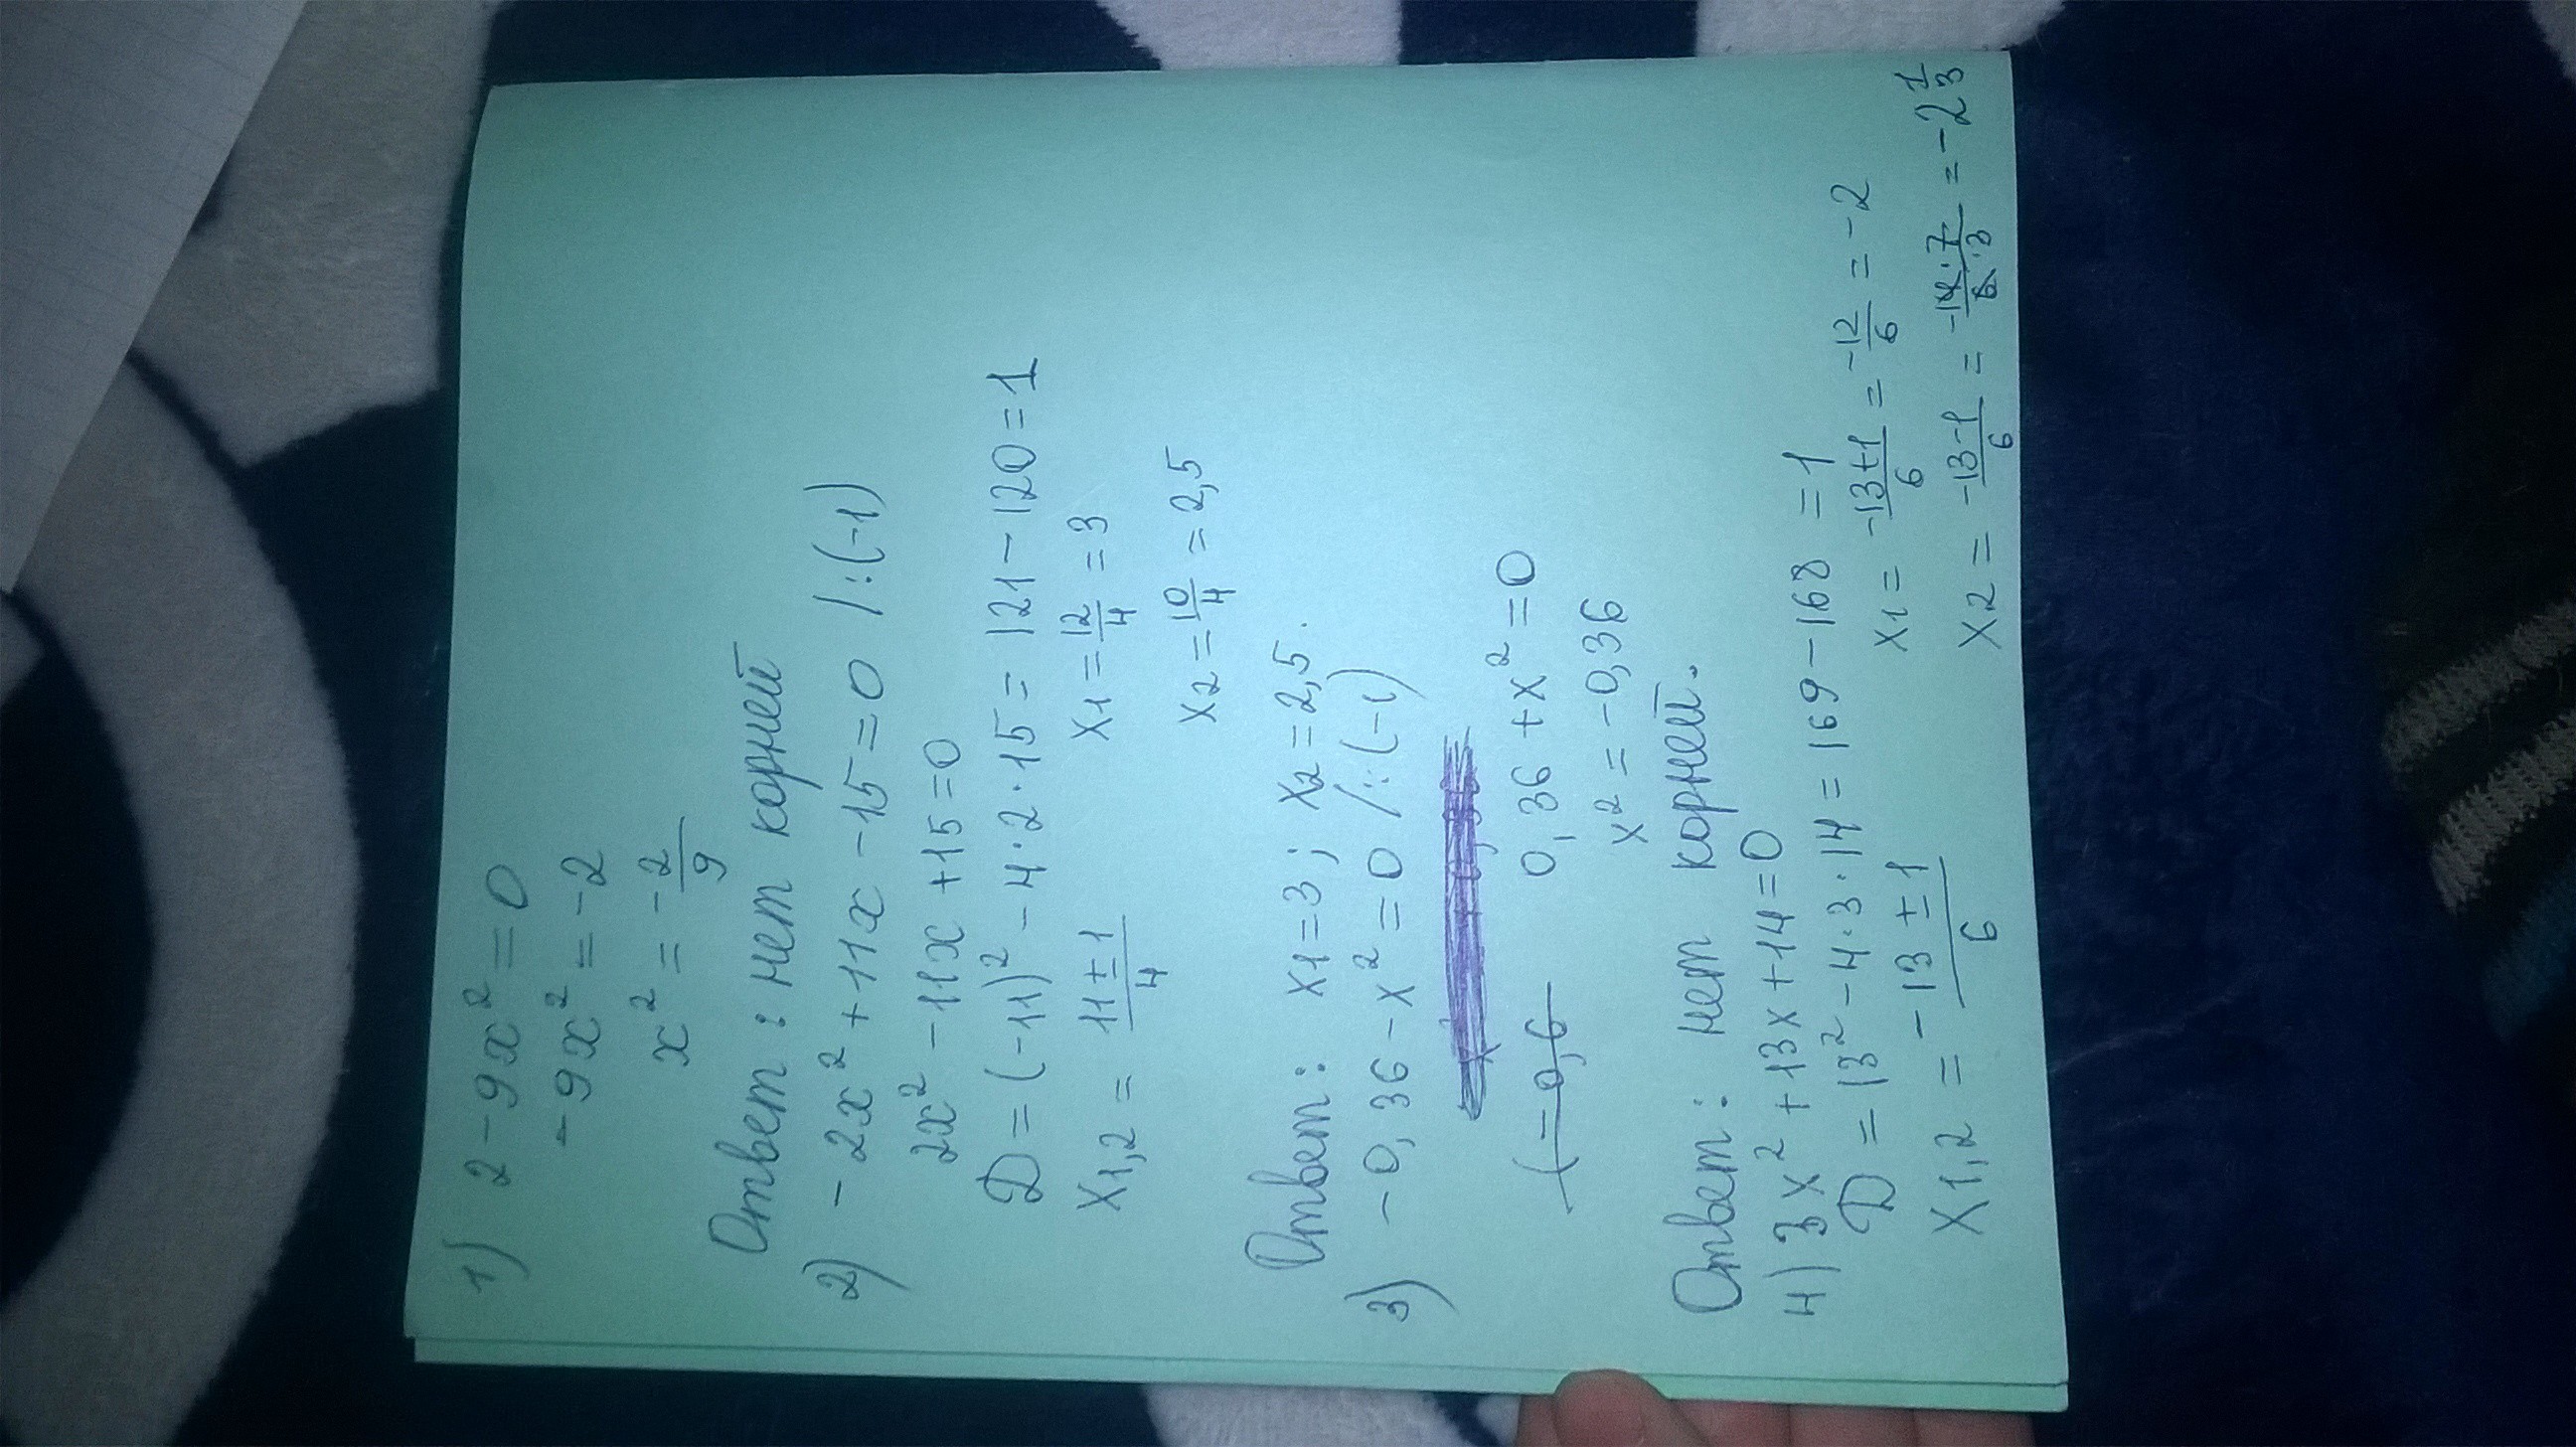 1) 2-9x²=0
-9x²=-2
x²=-2/9
Ответ: нет корней
2) -2x²+11x-15=0 /:(-1)
2x²-11x+15=0
D=(-11)²-4·2·15=121-120=1
x1,2=11±1/4 x1=12/4=3
x2=10/4=2,5
Ответ: x1=3; x2=2,5.
3) -0,36-x²=0 /:(-1)
(=0,6 0,36+x²=0
x²=-0,36
Ответ: нет корней.
4) 3x²+13x+14=0
D=13²-4·3·14=169-168=1
x1,2=-13±1/6 x1=-13+1/6=-12/6=-2
x2=-13-1/6=-14·7/6·3=-2 1/3